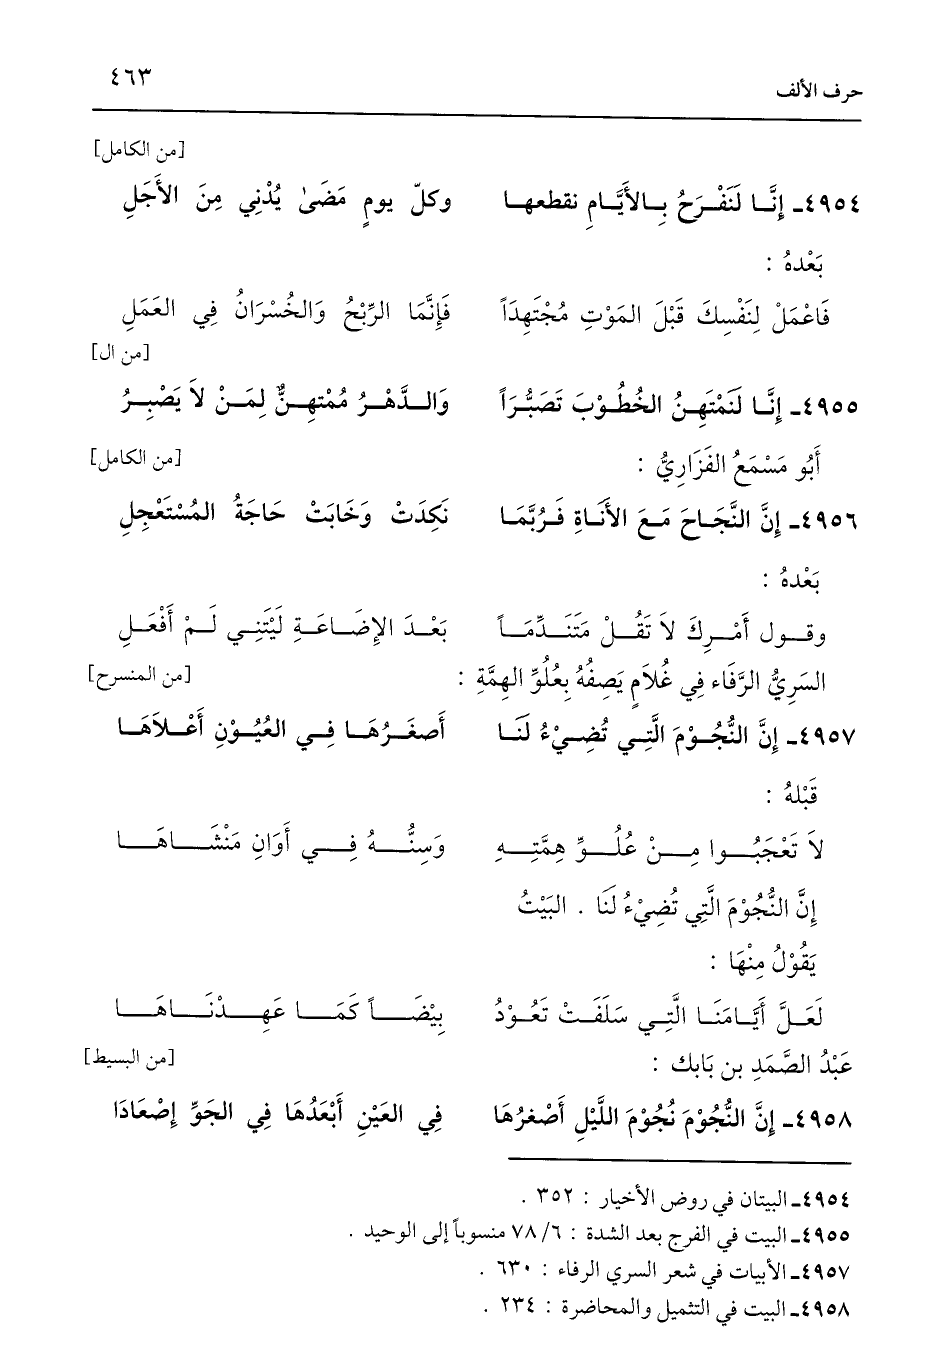 حرف الألف ٤٦٣
[من الكامل]
٤٩٥٤ـ إِنَّا لَنَفْرَحُ بِالأَيَّامِ نقطعها وكلّ يومٍ مَضَىٰ يُدْنِي مِنَ الأَجَلِ
بَعْدهُ :
فَاعْمَلْ لِنَفْسِكَ قَبْلَ المَوْتِ مُجْتَهِدَاً فَإِنَّمَا الرِّبْحُ وَالخُسْرَانُ فِي العَمَلِ
[من ال]
٤٩٥٥ـ إِنَّا لَنَمْتَهِنُ الخُطُوْبَ تَصَبُّرَاً وَالدَّهْرُ مُمْتهِنٌ لِمَنْ لاَ يَصْبِرُ
أَبُو مَسْمَعُ الفَزَارِيُّ : [من الكامل]
٤٩٥٦ـ إِنَّ النَّجَاحَ مَعَ الأَنَاةِ فَرُبَّمَا نَكِدَتْ وَخَابَتْ حَاجَةُ المُسْتَعْجِلِ
بَعْدهُ :
وقول أَمْرِكَ لاَ تَقُلْ مَتَنَدِّمَاً بَعْدَ الإِضَاعَةِ لَيْتَنِي لَمْ أَفْعَلِ
السَرِيُّ الرَّفَاء فِي غُلاَمٍ يَصِفُهُ بِعُلُوِّ الهِمَّةِ : [من المنسرح]
٤٩٥٧ـ إِنَّ النُّجُوْمَ الَّتِي تُضِيْءُ لَنَا أَصغَرُهَا فِي العُيُوْنِ أَعْلاَهَا
قَبْلهُ :
لاَ تَعْجَبُوا مِنْ عُلُوِّ هِمَّتِهِ وَسِنُّهُ فِي أَوَانِ مَنْشَاهَا
إِنَّ النُّجُوْمَ الَّتِي تُضِيْءُ لَنَا . البَيْتُ
يَقُوْلُ مِنْهَا :
لَعَلَّ أَيَّامَنَا الَّتِي سَلَفَتْ تَعُوْدُ بِيْضَاً كَمَا عَهِدْنَاهَا
عَبْدُ الصَّمَدِ بن بَابك : [من البسيط]
٤٩٥٨ـ إِنَّ النُّجُوْمَ نُجُوْمَ اللَّيْلِ أَصْغرُهَا فِي العَيْنِ أَبْعَدُهَا فِي الجَوِّ إِصْعَادَا
٤٩٥٤ـ البيتان في روض الأخيار : ٣٥٢ .
٤٩٥٥ـ البيت في الفرج بعد الشدة : ٦/ ٧٨ منسوباً إلى الوحيد .
٤٩٥٧ـ الأبيات في شعر السري الرفاء : ٦٣٠ .
٤٩٥٨ـ البيت في التثميل والمحاضرة : ٢٣٤ .